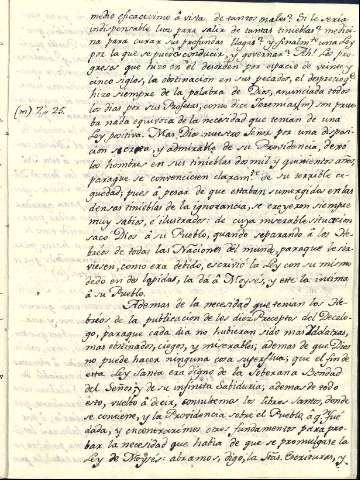 medio eficacisimo à vista de tantos males? Si le seria
indispensable luz para salir de tantas tinieblas? medici-
na para curar sus profundas llagas? y finalm.te una Ley
por la que se pueda conducir, y governar? Ah! los pro-
gresos que hizo en el desorden por espacio de veinte y
cinco siglos, la obstinacion en sus pecados, el desprecio q.e
hizo siempre de la palabra de Dios, anunciada todos
(m) 7. v. 25. los dias por sus Profetas, como dice Jeremias (m) son prue-
ba nada equivoca de la necesidad que tenian de una
Ley positiva. Mas Dios nuestro Señor, por una disposi-
cion secreta, y admirable de su Providencia, dexó
los hombres en sus tinieblas dos mil y quinientos años,
paraque se convenciesen claram.te de su terrible ce-
guedad; pues à pesar de que estaban sumergidos en las
densas tinieblas de la ignorancia, se creyeron siempre
muy sabios, è ilustrados: de cuya miserable situacion
sacó Dios à su Pueblo, quando separando à los He-
breos de todas las Naciones del mundo, paraque le sir-
viesen, como era debido, escrivió la Ley con su mismo
dedo en dos lapidas, la dà à Moyses, y este la intima
à su Pueblo.
Ademas de la necesidad que tenian los He-
breos de la publicacion de los diez Preceptos del Decalo-
go, paraque cada dia no hubieran sido mas idolatras,
mas obstinados, ciegos, y miserables; ademas de que Dios
no puede hacer ninguna cosa superflua; que el fin de
esta Ley Santa era digno de la Soberana Bondad
del Señor, y de su infinita Sabiduria; ademas de todo
esto, vuelvo à decir, consultemos los libros Santos, donde
se contiene, y la Providencia sobre el Pueblo, à q.n fue
dada, y encontraremos otros fundamentos para pro-
bar la necesidad que habia de que se promulgase la
Ley de Moyses: abramos, digo, las S.tas Escrituras, y